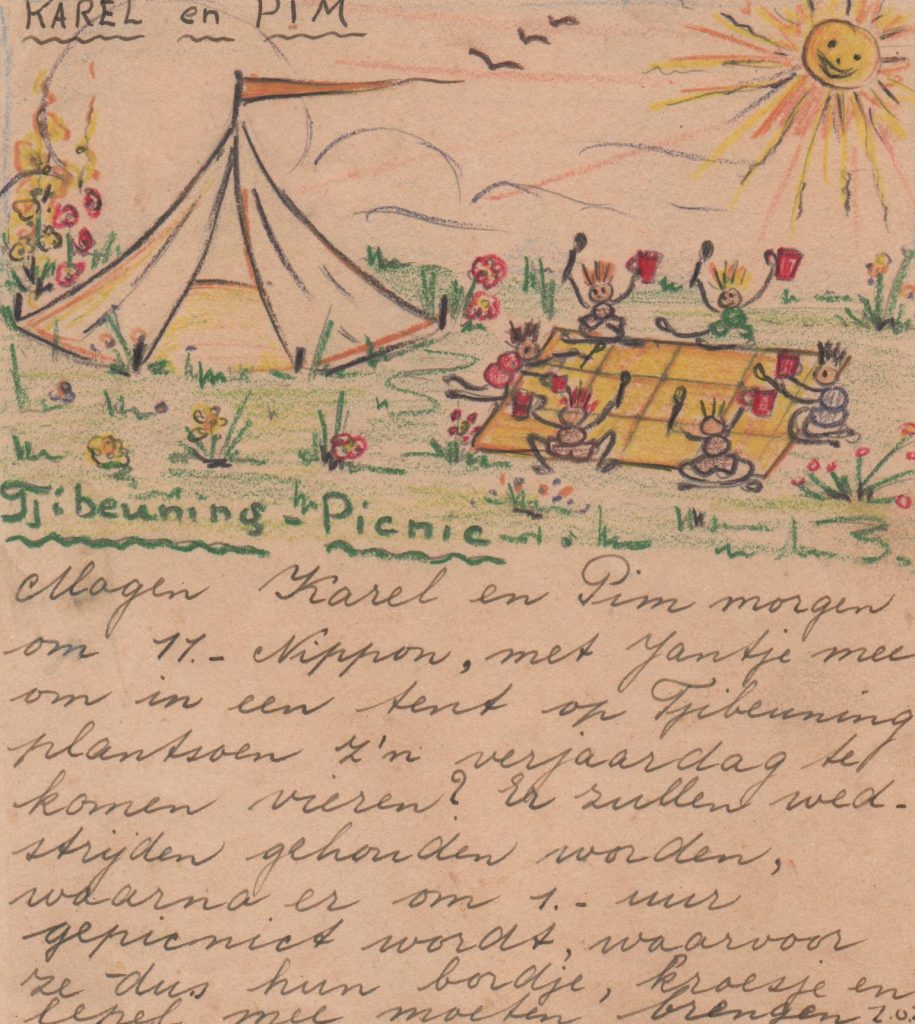 KAREL en PIM
Tjibeuning - Picnic
Mogen Karel en Pim morgen
om 11.- Nippon, met Jantje mee
om in een tent op Tjibeuning
plantsoen z'n verjaardag te
komen vieren? Er zullen wed-
strijden gehouden worden,
waarna er om 1.- uur
gepicnict wordt, waarvoor
ze dus hun bordje, kroesje en
lepel mee moeten brengen z.o.